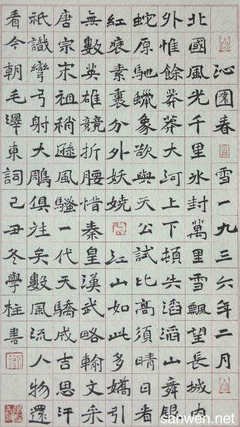 沁園春雪一九三六年二月
北國風光千里冰封萬里雪飄望長城内
外惟餘莽莽大河上下頓失滔滔山舞銀
蛇原馳蠟象欲與天公試比高須晴日看
紅裝素裹分外妖嬈江山如此多嬌引
無數英雄競折腰惜秦皇漢武略輸文采
唐宗宋祖稍遜風騷一代天驕成吉思汗
祇識彎弓射大雕俱往矣數風流人物還
看今朝毛澤東詞己丑冬學柱書
sanwen.net